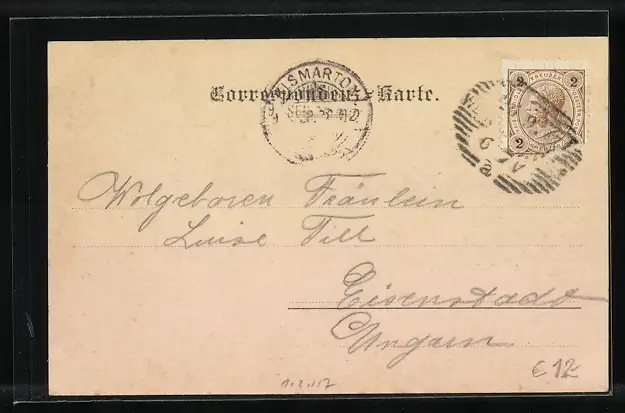 KISMARTO
Correspondenz-Karte.
2 KREUZER 2
2
a
Wolgeboren Fräulein
Luise Till
Eisenstadt
Ungarn
€ 12